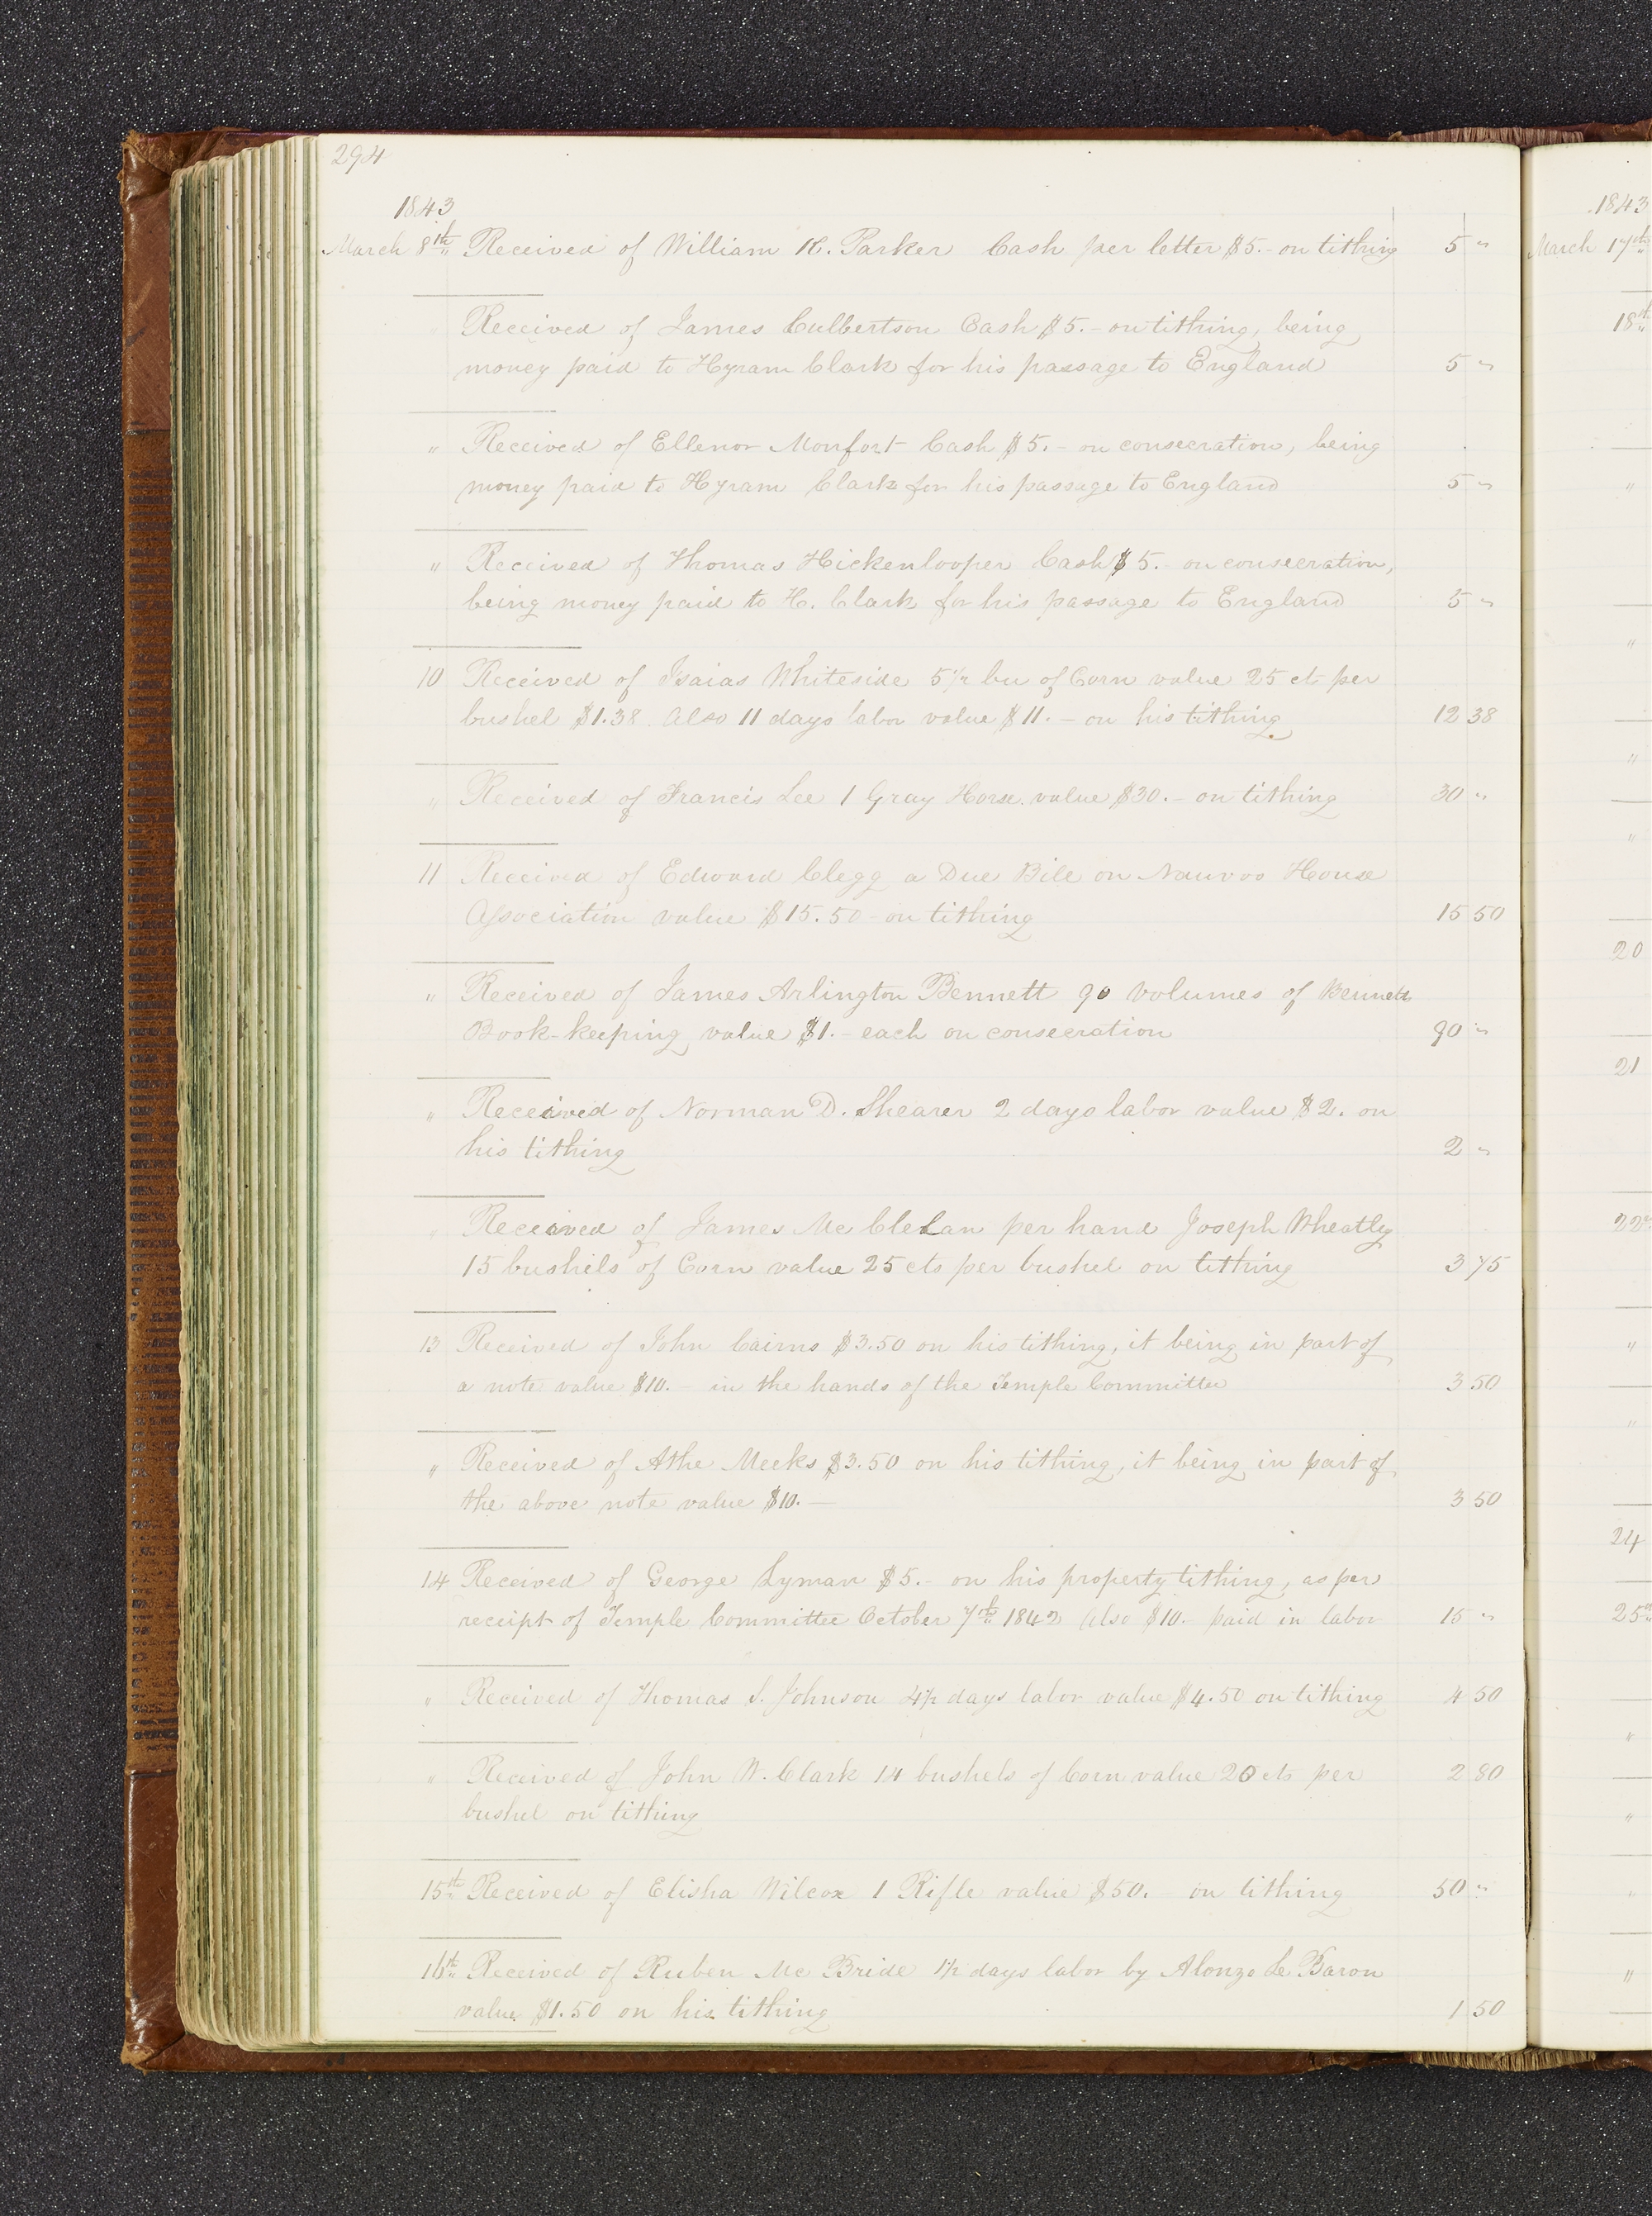 294
1843
March 8th Received of William K. Parker Cash per letter $5.- on tithing 5 "
Received of James Culbertson Cash $5.- on tithing, being
money paid to Hyram Clark for his passage to England 5 "
" Received of Ellenor Monfort Cash $5.- on consecration, being
money paid to Hyram Clark for his passage to England 5 "
" Received of Thomas Hickenlooper Cash $5.- on consecration,
being money paid to H. Clark for his passage to England 5 "
10 Received of Isaias Whiteside 5 1/2 bu of Corn value 25 ct per
bushel $1.38. Also 11 days labor value $11.- on his tithing 12 38
" Received of Francis Lee 1 Gray Horse value $30.- on tithing 30 "
11 Received of Edward Clegg a Due Bill on Nauvoo House
Association value $15.50 - on tithing 15 50
" Received of James Arlington Bennett 90 volumes of Bennets
Book-keeping value $1.- each on consecration 90 "
" Received of Norman D. Shearer 2 days labor value $2. on
his tithing 2 "
" Received of James McClelan per hand Joseph Wheatley
15 bushels of Corn value 25 cts per bushel on tithing 3 75
13 Received of John Cairns $3.50 on his tithing, it being in part of
a note value $10.- in the hands of the Temple Committee 3 50
" Received of Athe Meeks $3.50 on his tithing, it being in part of
the above note value $10.- 3 50
14 Received of George Lyman $5.- on his property tithing, as per
receipt of Temple Committee October 7th 1842 also $10.- paid in labor 15 "
" Received of Thomas S. Johnson 4 1/2 days labor value $4.50 on tithing 4 50
" Received of John W. Clark 14 bushels of Corn value 20 cts per 2 80
bushel on tithing
15th Received of Elisha Wilcox 1 Rifle value $50. on tithing 50 "
16th Received of Ruben Mc Bride 1 1/2 days labor by Alonzo Le Baron
value $1.50 on his tithing 1 50
1843
March 17th
18th
"
"
"
"
20
21
22
"
"
24
25th
"
"
"
"